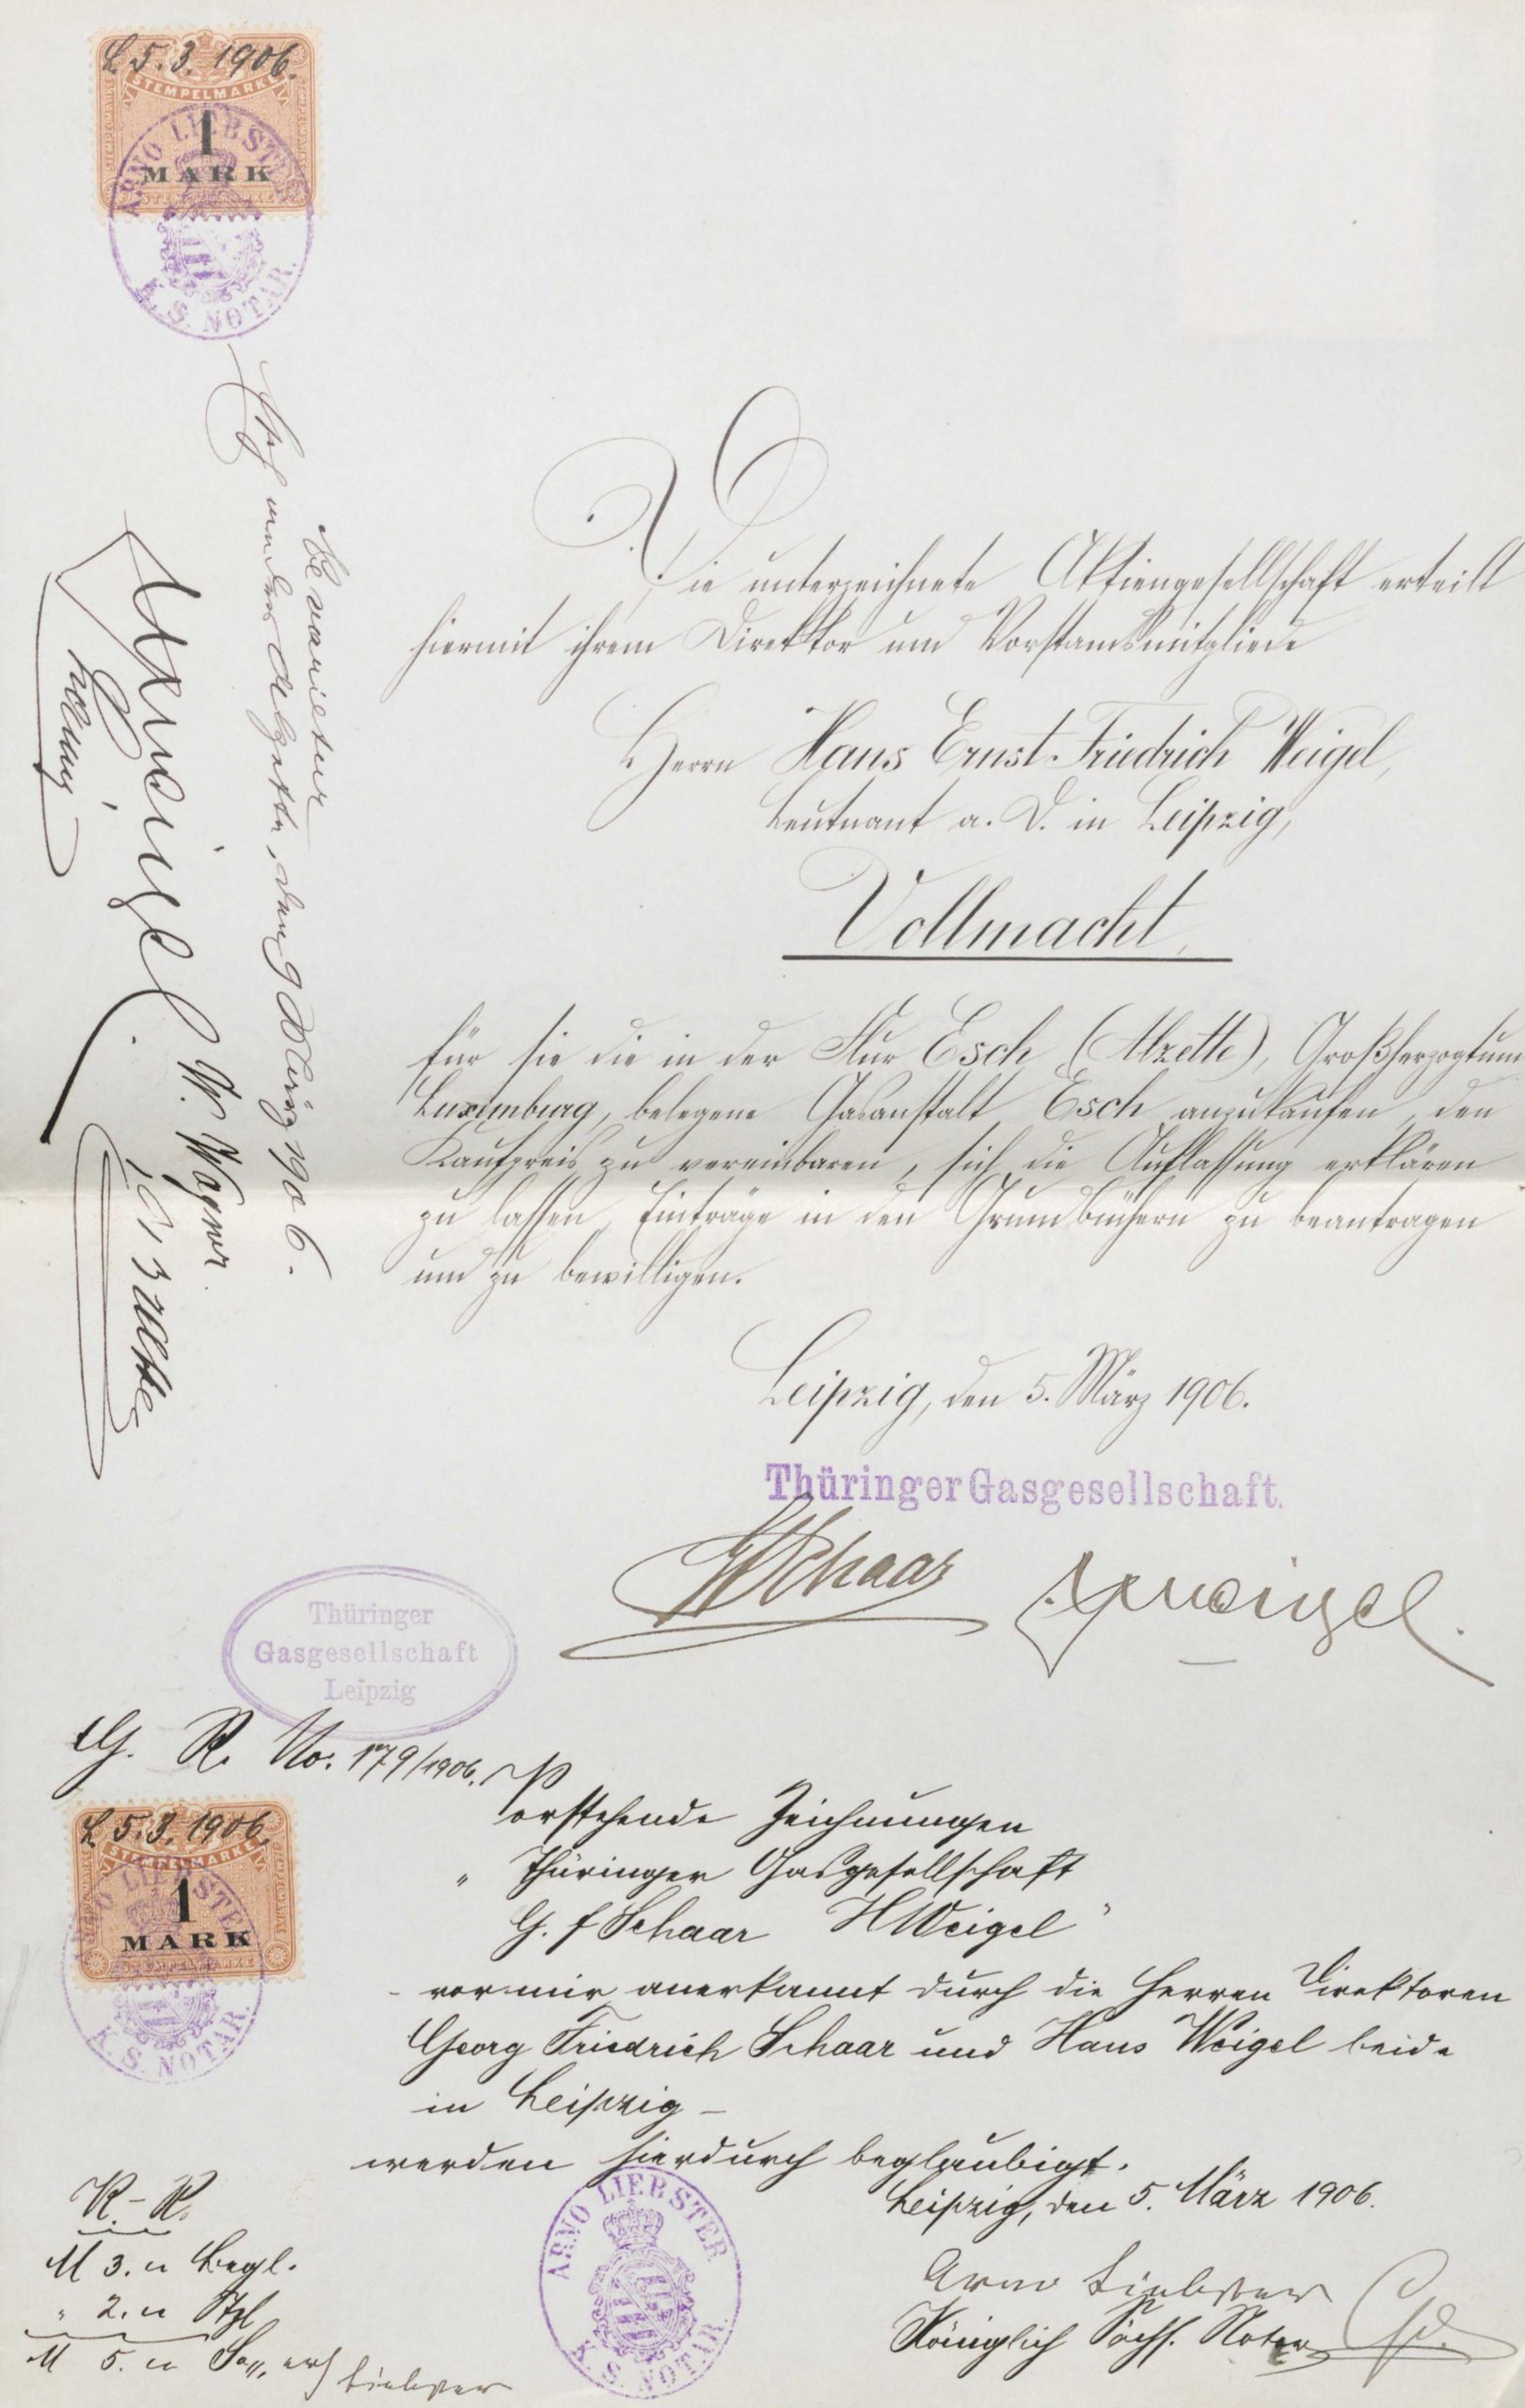 L. 5.3.1906.
STEMPELMARKE
1
MARK
ARNO LIEBSTER
K. S. NOTAR.
Die unterzeichnete Aktiengesellschaft erteilt
hiermit ihrem Direktor und Vorstandsmitgliede
Herrn Hans Ernst Friedrich Weigel,
Leutnant a. D. in Leipzig,
Vollmacht,
für sie die in der Flur Esch (Alzette), Großherzogtum
Luxemburg, belegene Gasanstalt Esch anzukaufen, den
Kaufpreis zu vereinbaren, sich die Auflassung erklären
zu lassen, Einträge in den Grundbüchern zu beantragen
und zu bewilligen.
Leipzig, den 5. März 1906.
Thüringer Gasgesellschaft.
GFSchaar HWeigel.
Thüringer
Gasgesellschaft
Leipzig
Ne varietur
Esch an der Alzette, den 9 März 1906.
HWeigel. W. Wagner
G. R. No. 179/1906.
L. 5.3.1906.
STEMPELMARKE
1
MARK
ARNO LIEBSTER
K. S. NOTAR.
Vorstehende Zeichnungen
„Thüringer Gasgesellschaft
G. F Schaar HWeigel"
- vor mir anerkannt durch die Herren Direktoren
Georg Friedrich Schaar und Hans Weigel beide
in Leipzig -
werden hierdurch beglaubigt.
Leipzig, den 5. März 1906.
Arno Liebster
Königlich Sächs. Notar
ARNO LIEBSTER
K. S. NOTAR.
K.-R.
M 3. „ Begl.
„ 2. „ Stpl
M 5. „ Liebster